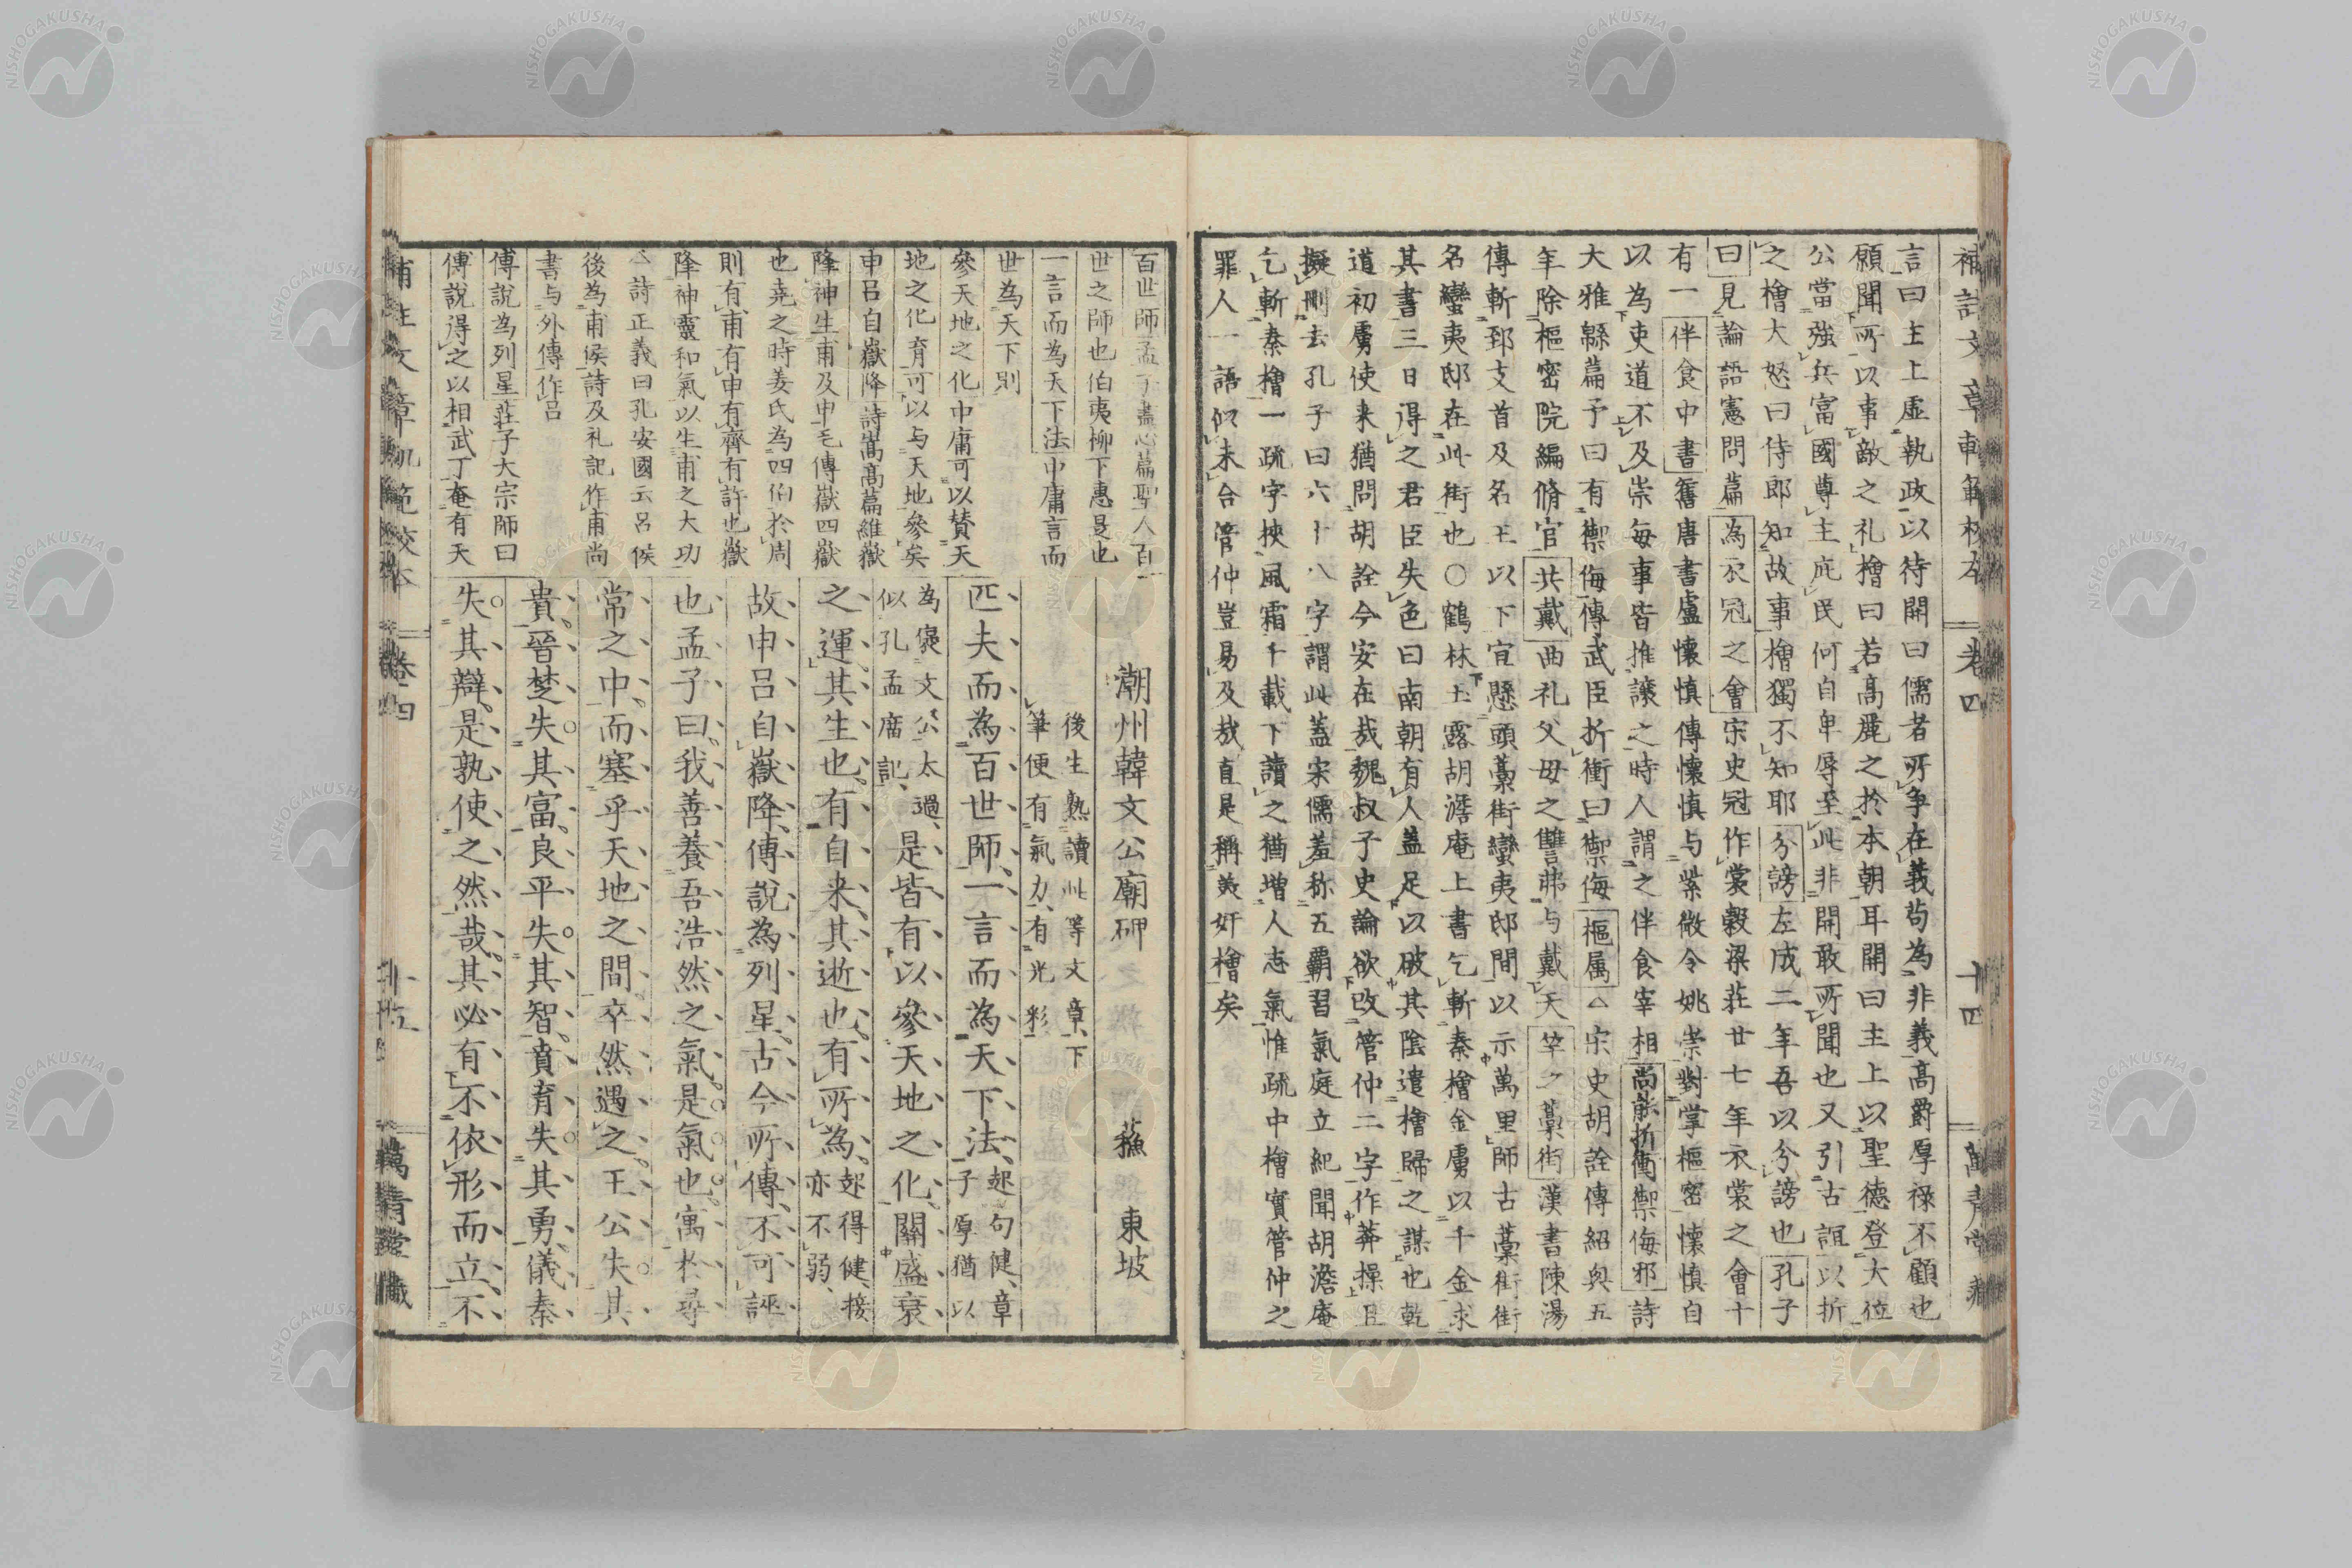 補註文章軌範校本 卷四 十四 萬青堂藏
言曰主上虛執政以待開曰儒者所爭在義苟為非義高爵厚祿不顧也
願聞所以事敵之礼檜曰若高麗之於本朝耳開曰主上以聖德登大位
公當強兵富國尊主庇民何自卑辱至此非開敢所聞也又引古誼以折
之檜大怒曰侍郎知故事檜獨不知耶分謗左成二年吾以分謗也孔子
曰見論語憲問篇為衣冠之會宋史冠作裳穀梁莊廿七年衣裳之會十
有一伴食中書舊唐書盧懷慎傳懷慎与紫微令姚崇對掌樞密懷慎自
以為吏道不及崇每事皆推讓之時人謂之伴食宰相尚能折衝禦侮邪詩
大雅緜篇予曰有禦侮傳武臣折衝曰禦侮樞属△宋史胡詮傳紹興五
年除樞密院編脩官共戴曲礼父母之讐弗与戴天竿之藁街漢書陳湯
傳斬郅支首及名王以下宜懸頭藁街蠻夷邸間以示萬里師古藁街街
名蠻夷邸在此街也○鶴林玉露胡澹庵上書乞斬秦檜金虜以千金求
其書三日得之君臣失色曰南朝有人蓋足以破其陰遣檜歸之謀也乾
道初虜使来猶問胡詮今安在哉魏叔子史論欲改管仲二字作莽操且
擬刪去孔子曰六十八字謂此蓋宋儒羞称五覇習氣庭立紀聞胡澹庵
乞斬秦檜一疏字挾風霜千載下讀之猶增人志氣惟疏中檜實管仲之
罪人一語似未合管仲豈易及哉直是稱美奸檜矣
百世師孟子盡心篇聖人百
世之師也伯夷柳下惠是也
一言而為天下法中庸言而
世為天下則
參天地之化中庸可以賛天
地之化育可以与天地參矣
申呂自嶽降詩嵩高篇維嶽
降神生甫及申毛傳嶽四嶽
也堯之時姜氏為四伯於周
則有甫有申有齊有許也嶽
降神靈和氣以生甫之大功
△詩正義曰孔安國云呂侯
後為甫侯詩及礼記作甫尚
書与外傳作呂
傳說為列星莊子大宗師曰
傳說得之以相武丁奄有天
潮州韓文公廟碑 蘇東坡
後生熟讀此等文章下
筆便有氣力有光彩
匹夫而為百世師一言而為天下法起句健章
子厚猶以
為褒文公太過
似孔孟廣記
是皆有以參天地之化關盛衰
之運其生也有自来其逝也有所為起得健接
亦不弱
故申呂自嶽降傳說為列星古今所傳不可誣
也孟子曰我善養吾浩然之氣是氣也寓於尋
常之中而塞乎天地之間卒然遇之王公失其
貴晉楚失其富良平失其智賁育失其勇儀秦
失其辯是孰使之然哉其必有不依形而立不
補註文章軌範校本 卷四 萬青堂藏
NISHOGAKUSHA